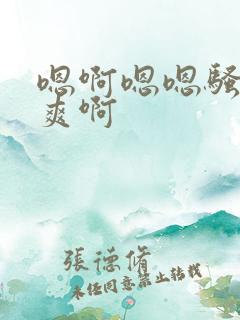 嗯啊嗯嗯骚
爽啊
張德脩
未经同意禁止转载